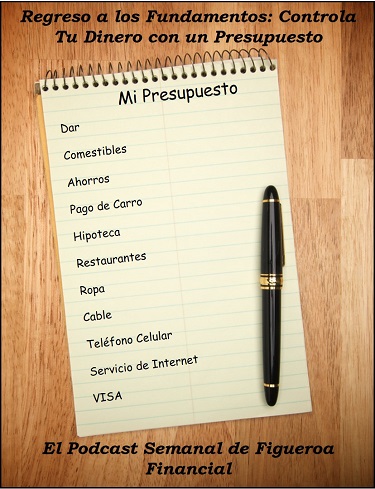 Regreso a los Fundamentos: Controla
Tu Dinero con un Presupuesto
Mi Presupuesto
Dar
Comestibles
Ahorros
Pago de Carro
Hipoteca
Restaurantes
Ropa
Cable
Teléfono Celular
Servicio de Internet
VISA
El Podcast Semanal de Figueroa
Financial